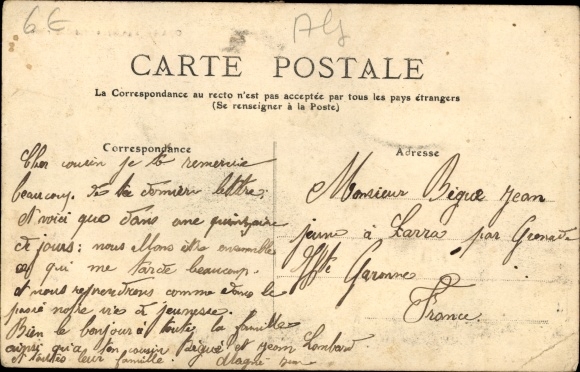 6€
Alg
CARTE POSTALE
La Correspondance au recto n'est pas acceptée par tous les pays étrangers
(Se renseigner à la Poste)
Correspondance
Cher cousin je te remercie
beaucoup de ta derniere lettre;
et voici que dans une quinzaine
de jours; nous allons être ensemble
ce qui me tarde beaucoup.
et nous reprendrons comme dans le
passé notre vie de jeunesse.
Bien le bonjour à toute la famille
ainsi qu'a ton cousin Bégué et Jean Lombard
et toutes leur famille. Magné Jean
Adresse
Monsieur Bégué Jean
jeune à Larra par Grenade
Hte Garonne
France